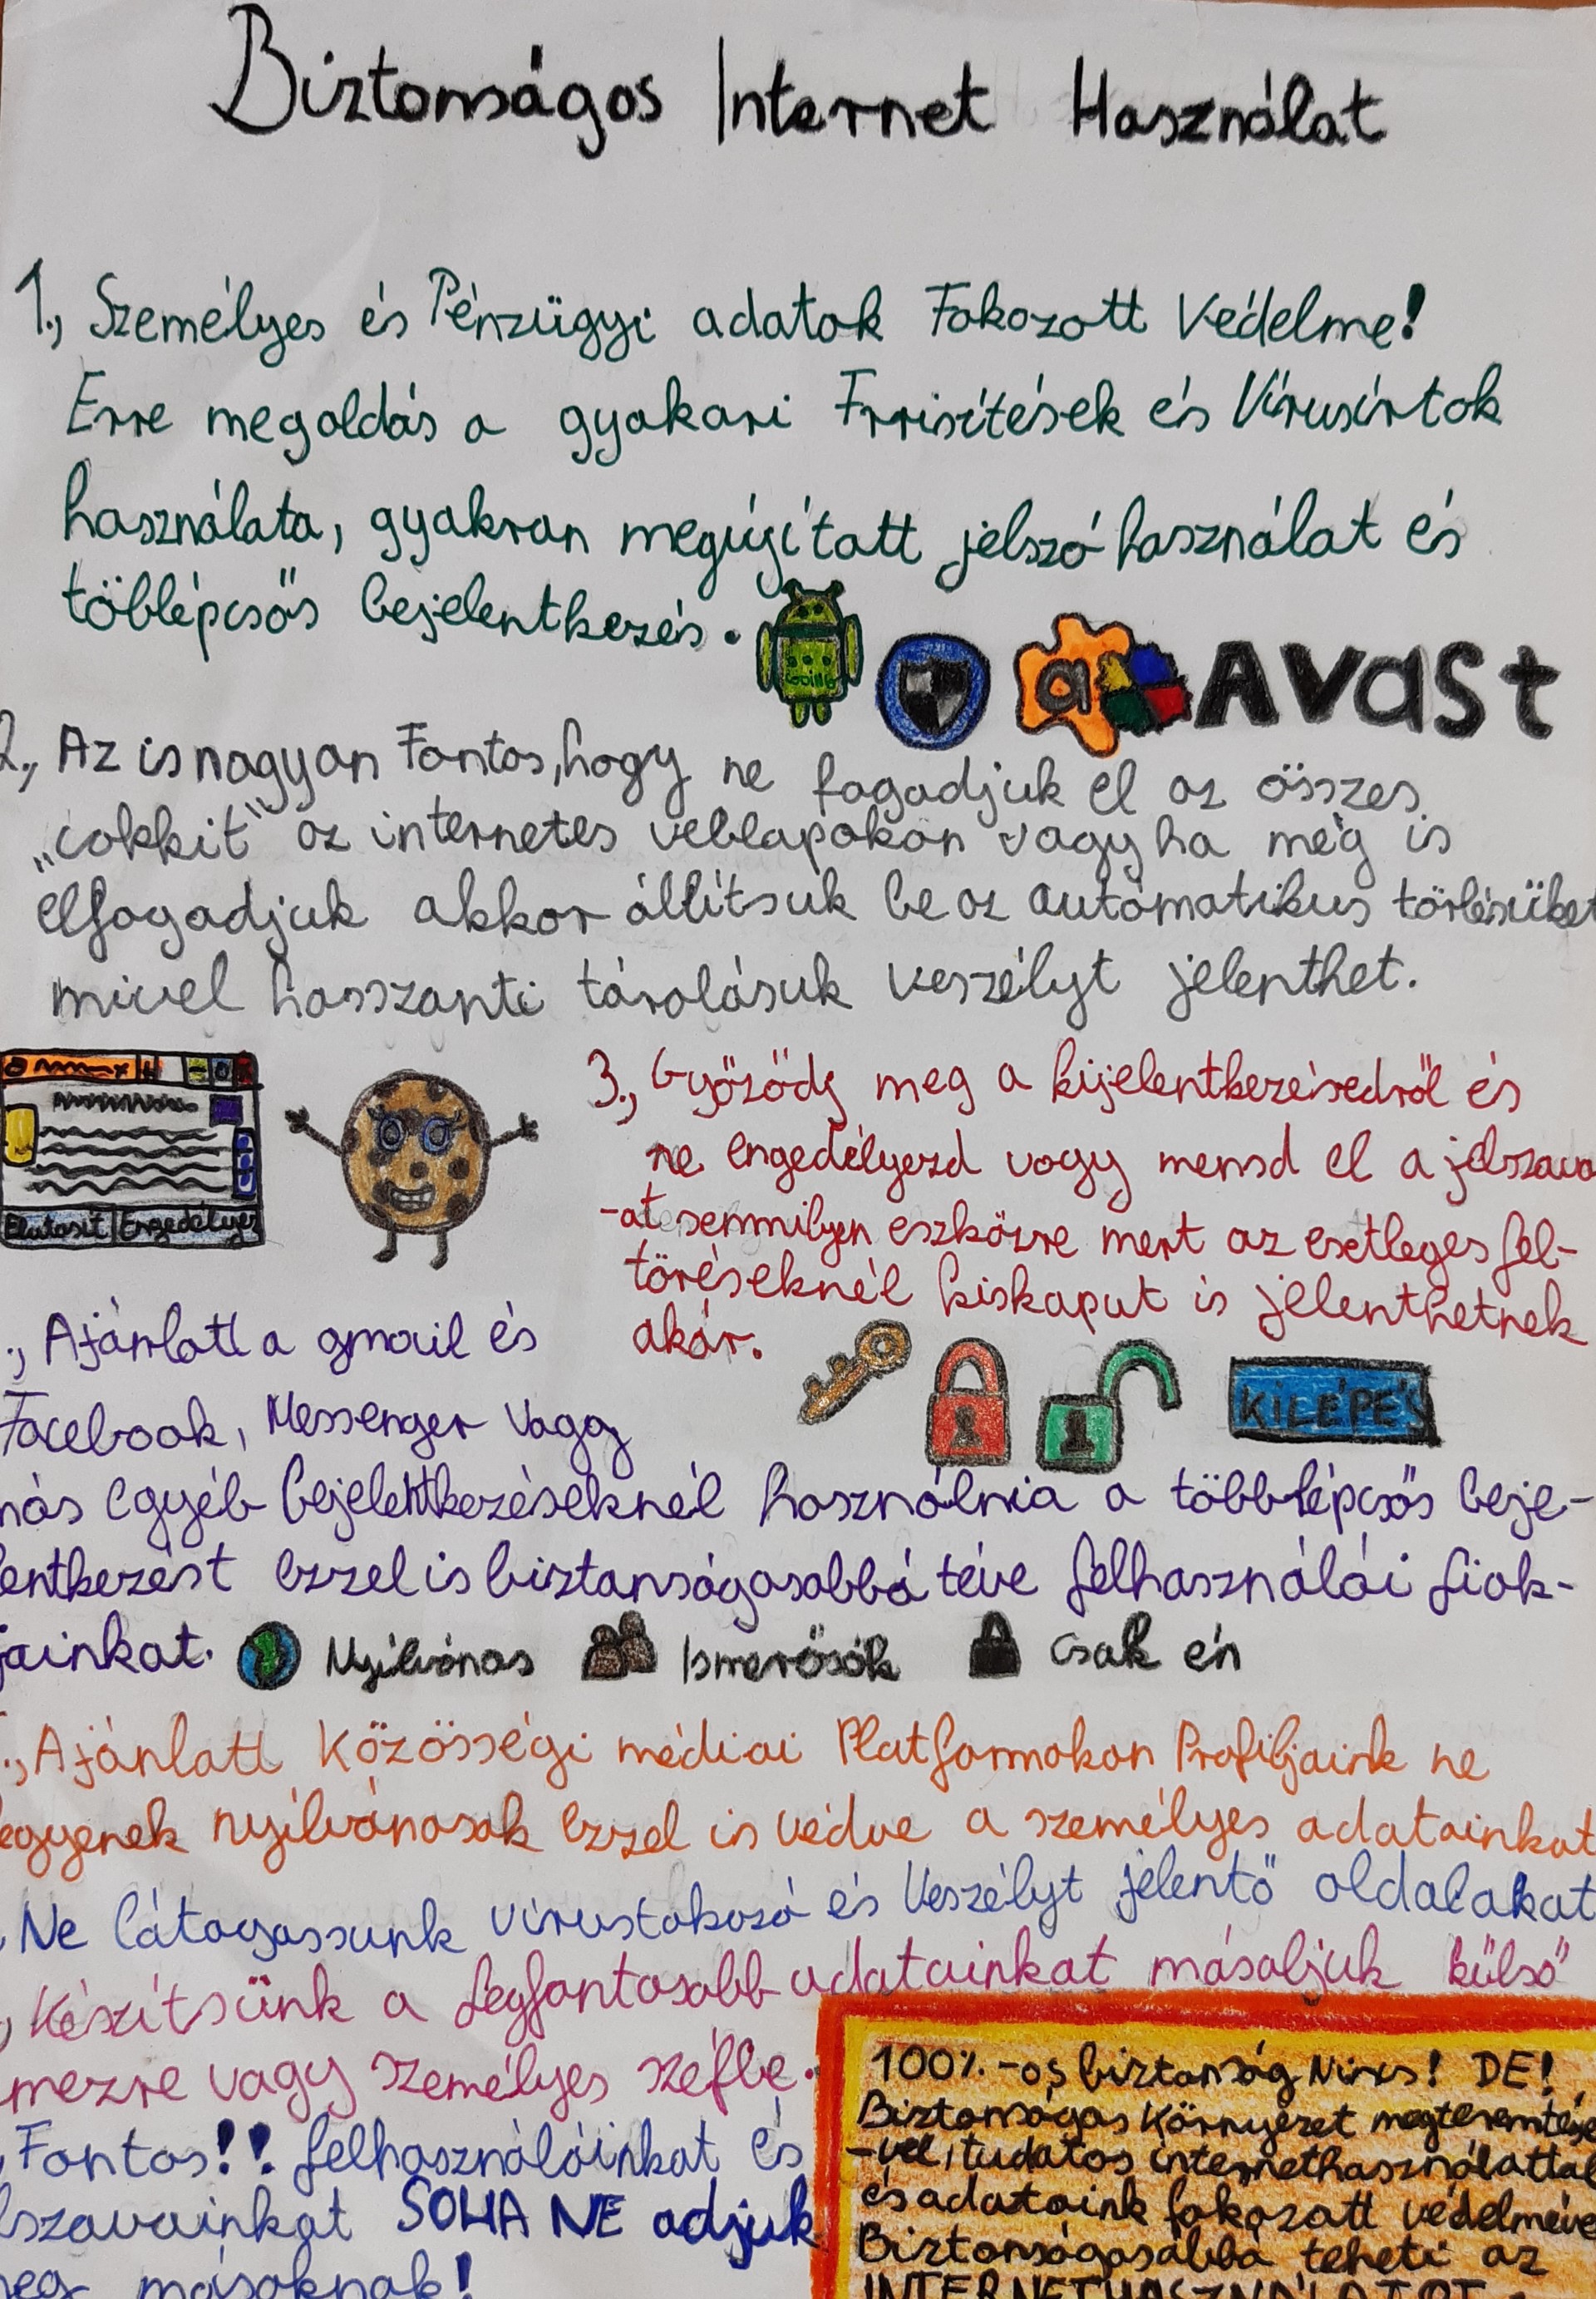 Biztonságos Internet Használat
1., Személyes és Pénzügyi adatok Fokozott Védelme!
Erre megoldás a gyakari Frrisítések és Vírusírtok
használata, gyakran megújított jelszó használat és
töblépcsős bejelentkezés.
a AVAST
2., Az is nagyan Fontos, hogy ne fogadjuk el az összes
„cokkit" az internetes veblapokon vagy ha még is
elfogadjuk akkor állítsuk be az automatikus törlésüket
mivel hosszanti tárolásuk veszélyt jelenthet.
Elutasít Engedélyez
3., Győződj meg a kijelentkezésedről és
ne engedélyezd vagy mensd el a jelszava
-at semmilyen eszközre mert az esetleges fel-
töréseknél kiskaput is jelenthetnek
akár.
KILÉPÉS
., Ajánlatt a gmail és
Facebook, Messenger vagy
más egyéb bejelentkezéseknél használnia a többlépcsős beje-
lentkezést ezzel is biztanságosabbá téve felhasználói fiok-
jainkat.
Nyilvános Ismerősök Csak én
., Ajánlatt Közösségi médiai Platformokon Profiljaink ne
legyenek nyilvánosak ezzel is védve a személyes adatainkat
Ne látogassunk vírustokozó és Veszélyt jelentő oldalakat
, Készítsünk a legfontosabb adatainkat másoljuk külső
mezre vagy személyes széfbe.
Fontos!! felhasználóinkat és
lszavainkat SOHA NE adjuk
meg másoknak!
100%-os biztonság Nincs! DE!
Biztonságos Környezet megteremtésé
-vel, tudatos internethasználattal
és adataink fokozatt védelméve
Biztonságosabbá teheti az
INTERNETHASZNÁLATOT